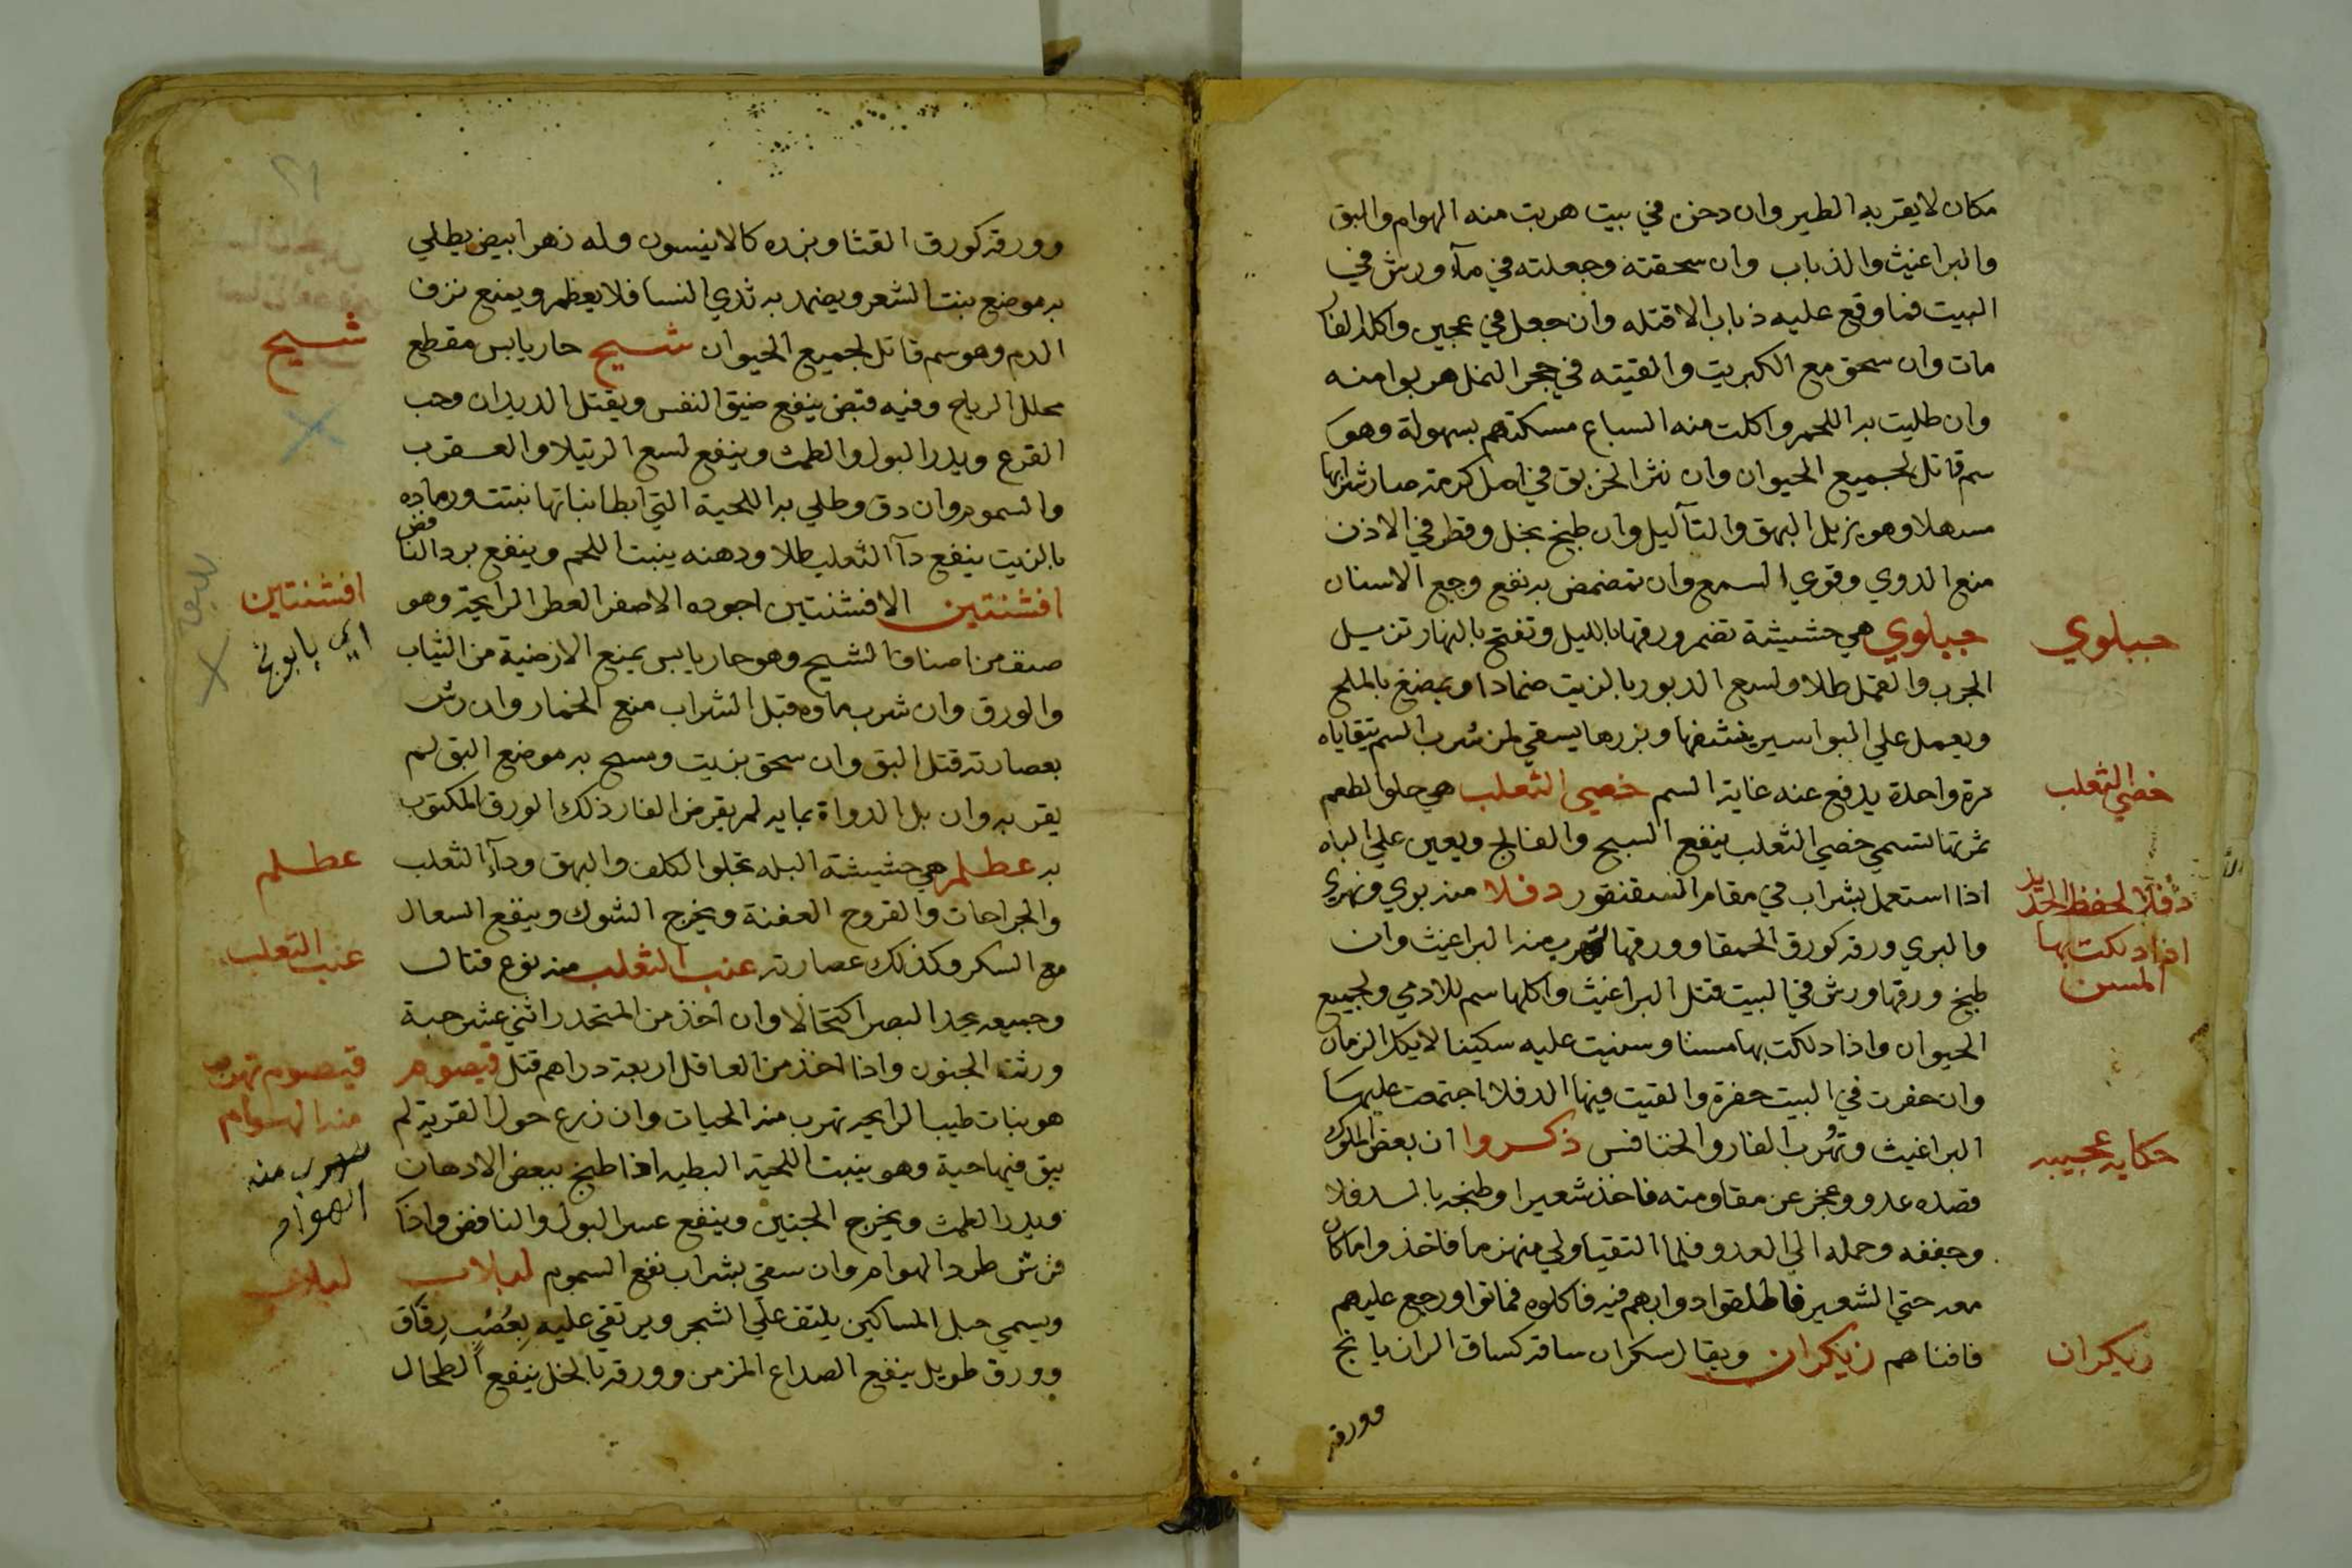 مكان لا يقربه الطير وان دخن في بيت هربت منه الهوام والبق
والبراغيث والذباب وان سحقته وجعلته في مآء ورش في
البيت فما وقع عليه ذباب الا قتله وان جعل في عجين واكله الفأر
مات وان سحق مع الكبريت والقيته في جحر النمل هربوا منه
وان طليت به اللحم واكلت منه السباع مسكتهم بسهولة وهو
سم قاتل لجميع الحيوان وان نثر الخربق في اصل كرمة صار شرابها
مسهلا وهو يزيل البهق والتآليل وان طبخ بخل وقطر في الاذن
منع الدوي وقوي السمع وان تمضمض به نفع وجع الاسنان
جبلوي
جبلوي هي حشيشة تضم ورقها بالليل وتفتح بالنهار تزيل
الجرب والقمل طلا ولسع الدبور بالزيت ضمادا ويمضغ بالملح
ويعمل علي البواسير ينشفها وبزرها يسقي لمن شرب السم يتقاياه
خصي الثعلب
مرة واحدة يدفع عنه غاية السم خصي الثعلب هي حلو الطعم
ثمرتها تسمي خصي الثعلب ينفع السبح والفالج ويعين علي الباه
دفلا لحفظ الحديد
اذا دلكت بها
المسن
اذا استعمل بشراب في مقام السقنقور دفلا منه بري ونهري
والبري ورقه كورق الحمقا وورقها يهرب منه البراغيث وان
طبخ ورقها ورش في البيت قتل البراغيث واكلها سم للادمي ولجميع
الحيوان واذا دلكت بها مسنا وسنيت عليه سكينا لا يكل الزمان
وان حفرت في البيت حفرة والقيت فيها الدفلا اجتمعت عليها
حكاية عجيبه
البراغيث وتهرب الفار والخنافس ذكروا ان بعض الملوك
قصده عدو وعجز عن مقاومته فاخذ شعيرا وطبخه بالدفلا
وجففه وحمله الي العدو فلما التقيا ولي منهزما فاخذوا ما كان
معه حتي الشعير فاطلقوا دوابهم فيه فاكلوه فماتوا ورجع عليهم
زيكران
فافناهم زيكران ويقال سكران ساقه كساق الرازيانج
وورقه
٢١
وورقه كورق القثا وبزره كالانيسون وله زهر ابيض يطلي
به موضع نبت الشعر ويضمد به ثدي النسا فلا يعظم ويمنع نزف
شيح
الدم وهو سم قاتل لجميع الحيوان شيح حار يابس مقطع
محلل الرياح وفيه قبض ينفع ضيق النفس ويقتل الديدان وحب
القرع ويدر البول والطمث وينفع لسع الرتيلا والعقرب
والسموم وان دق وطلي به اللحية التي ابطا نباتها نبتت ورماده
بالزيت ينفع دآ الثعلب طلا ودهنه ينبت اللحم وينفع برد النافض
افشنتين
اي بابونج
افشنتين الافشنتين اجوده الاصفر العطر الرايحة وهو
صنف من اصناف الشيح وهو حار يابس يمنع الارضية من الثياب
والورق وان شرب ماوه قبل الشراب منع الخمار وان رش
بعصارته قتل البق وان سحق بزيت ومسح به موضع البق لم
يقربه وان بل الدواة بمايه لم يقرض الفار ذلك الورق المكتوب
عظلم
به عظلم هي حشيشة البله تجلوا الكلف والبهق ودآء الثعلب
والجراحات والقروح العفنة ويخرج الشوك وينفع السعال
عنب الثعلب
مع السكر وكذلك عصارته عنب الثعلب منه نوع قتال
وجميعه يحد البصر اكتحالا وان اخذ من المتخدر اثني عشر حبة
قيصوم تهرب
منه الهوام
تهرب منه
الهوام
ورثت الجنون واذا اخذ من العاقل اربعة دراهم قتل قيصوم
هو نبات طيب الرايحه تهرب منه الحيات وان زرع حول القرية لم
يبق فيها حية وهو ينبت اللحية البطيه اذا طبخ ببعض الادهان
ويدر الطمث ويخرج الجنين وينفع عسر البول والنافض واذا
لبلاب
فرش طرد الهوام وان سقي بشراب نفع السموم لبلاب
ويسمي حبل المساكين يلتف علي الشجر ويرتقي عليه بعُضُبٍ رقاق
وورق طويل ينفع الصداع المزمن وورقه بالخل ينفع الطحال